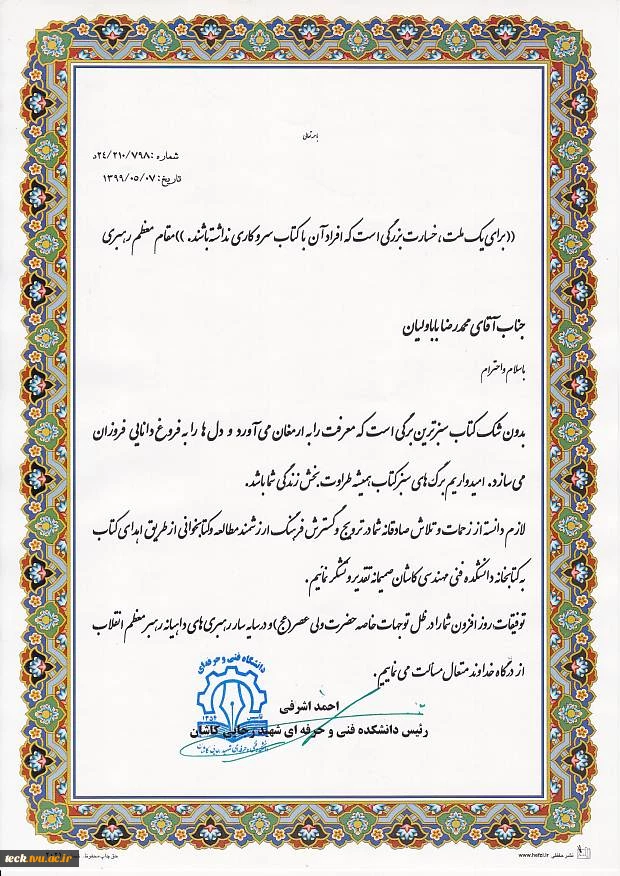 باسمه تعالی
شماره : ۲۴/۲۱۰/۷۹۸د
تاریخ: ۱۳۹۹/۰۵/۰۷
((برای یک ملت، خسارت بزرگی است که افراد آن با کتاب سر و کاری نداشته باشند. ))مقام معظم رهبری
جناب آقای محمدرضا باباولیان
باسلام واحترام
بدون شک کتاب سبزترین برگی است که معرفت را به ارمغان می آورد و دل ها را به فروغ دانایی فروزان
می سازد. امیدواریم برگ های سبز کتاب همیشه طراوت بخش زندگی شما باشد.
لازم دانسته از زحمات و تلاش صادقانه شما در ترویج و گسترش فرهنگ ارزشمند مطالعه و کتابخوانی از طریق اهدای کتاب
به کتابخانه دانشکده فنی مهندسی کاشان صمیمانه تقدیر و تشکر نمائیم.
توفیقات روز افزون شما را در ظل توجهات خاصه حضرت ولی عصر(عج)و در سایه سار رهبری های داهیانه رهبر معظم انقلاب
از درگاه خداوند متعال مسالت می نماییم.
دانشگاه فنی و حرفه‌ای
احمد اشرفی
تاسیس ۱۳۵۴
رئیس دانشکده فنی و حرفه ای شهید رجایی کاشان
teck.tvu.ac.ir
حق چاپ محفوظ
www.hefzi.ir نشر حفظی